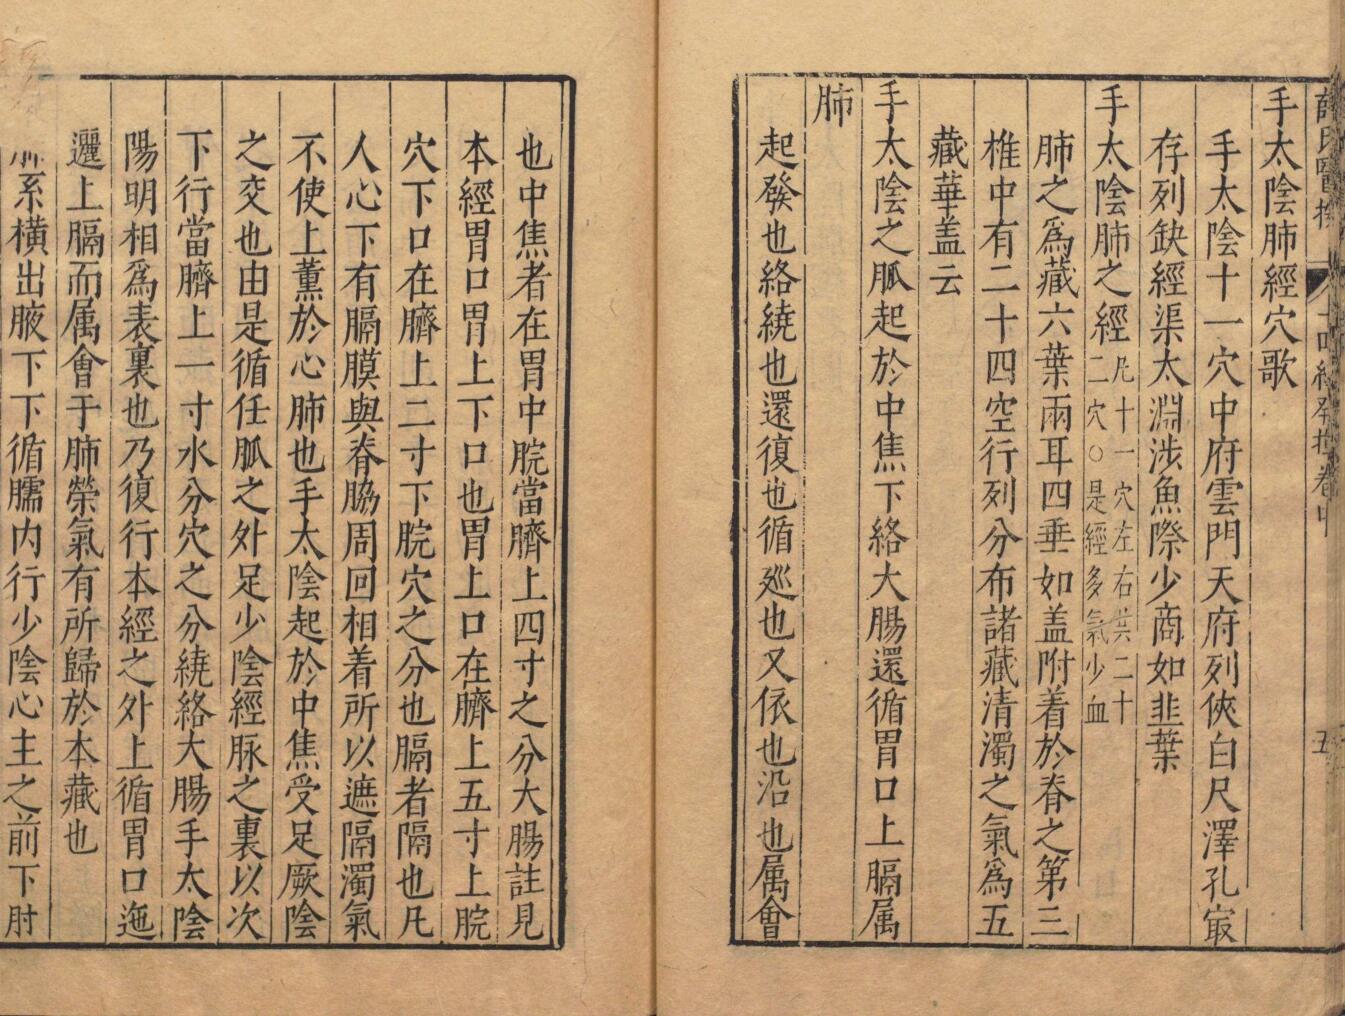 薛氏醫按 十四經發揮卷中 五
手太陰肺經穴歌
手太陰十一穴中府雲門天府列俠白尺澤孔冣
存列缺經渠太淵涉魚際少商如韭葉
手太陰肺之經凡十一穴左右共二十
二穴○是經多氣少血
肺之爲藏六葉兩耳四垂如盖附着於脊之第三
椎中有二十四空行列分布諸藏清濁之氣爲五
藏華盖云
手太陰之脈起於中焦下絡大腸還循胃口上膈属
肺
起發也絡繞也還復也循廵也又依也沿也属會
也中焦者在胃中脘當臍上四寸之分大腸註見
本經胃口胃上下口也胃上口在臍上五寸上脘
穴下口在臍上二寸下脘穴之分也膈者隔也凡
人心下有膈膜與脊脇周回相着所以遮隔濁氣
不使上薰於心肺也手太陰起於中焦受足厥陰
之交也由是循任脈之外足少陰經脉之裏以次
下行當臍上一寸水分穴之分繞絡大腸手太陰
陽明相爲表裏也乃復行本經之外上循胃口迤
邐上膈而属會于肺榮氣有所歸於本藏也
系橫出腋下下循臑内行少陰心主之前下肘